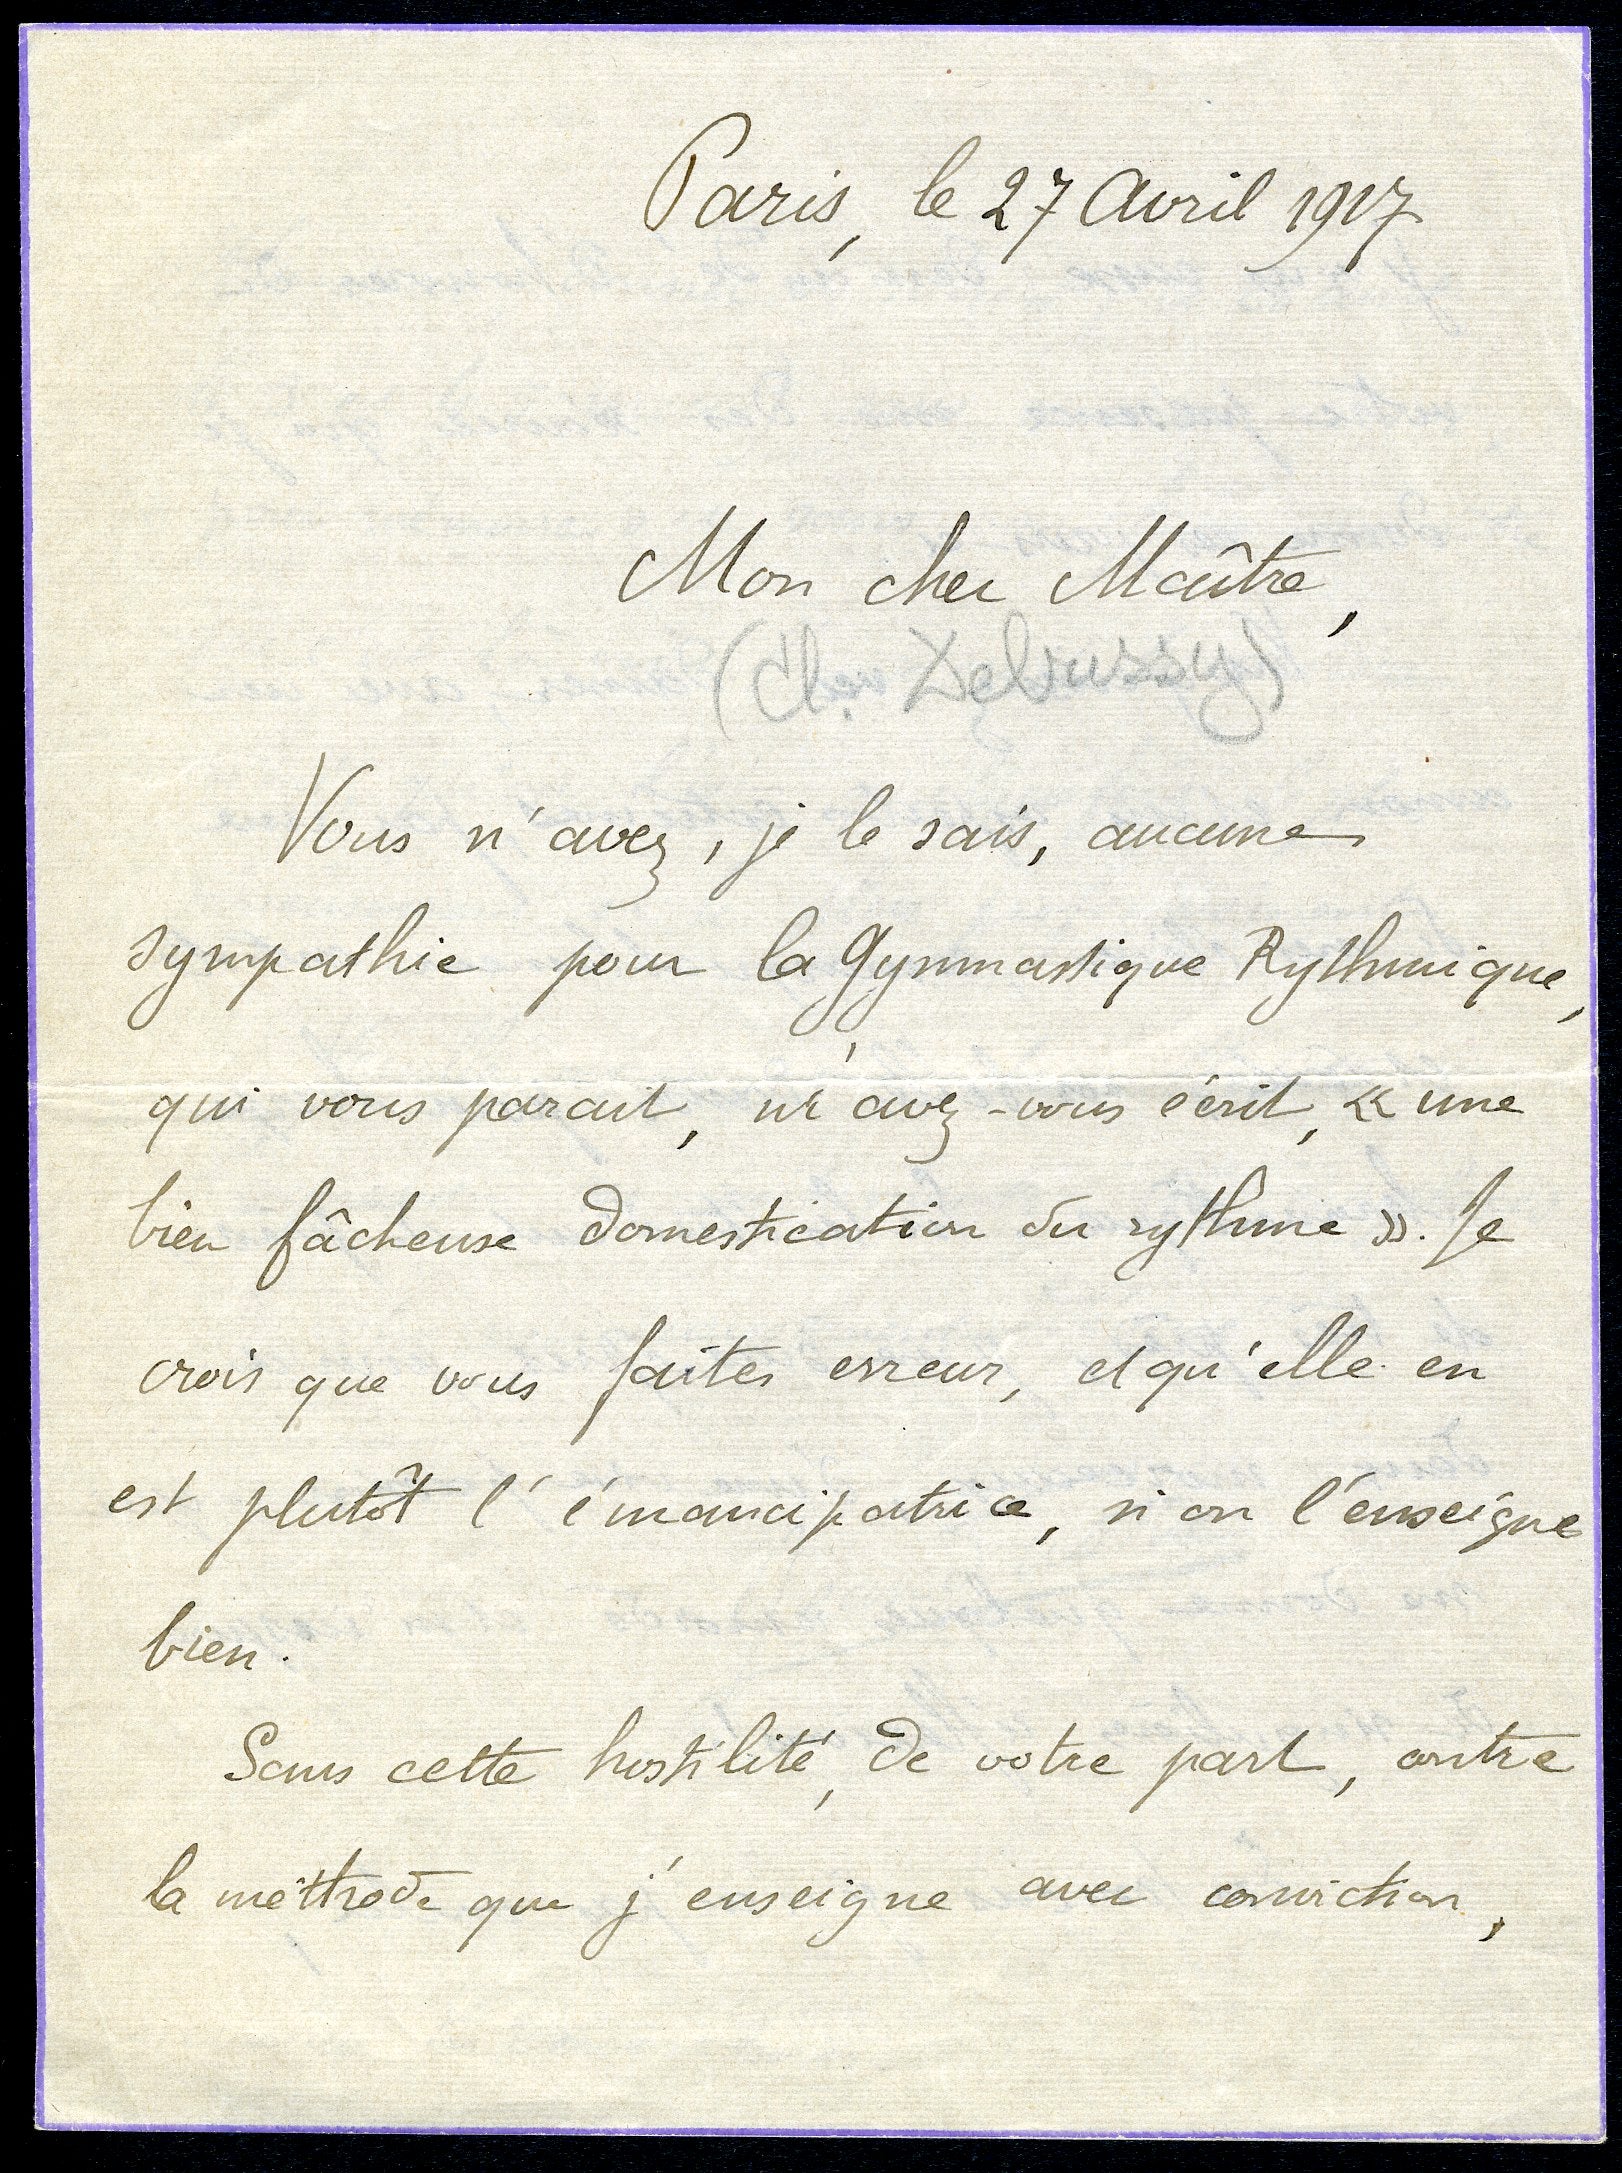 Paris, le 27 Avril 1917
Mon cher Maître,
(Cl. Debussy)
Vous n'avez, je le sais, aucune
sympathie pour la Gymnastique Rythmique,
qui vous parait, m'avez-vous écrit, « une
bien fâcheuse domestication du rythme ». Je
crois que vous faites erreur, et qu'elle en
est plutôt l'émancipatrice, si on l'enseigne
bien.
Sans cette hostilité, de votre part, contre
la méthode que j'enseigne avec conviction,